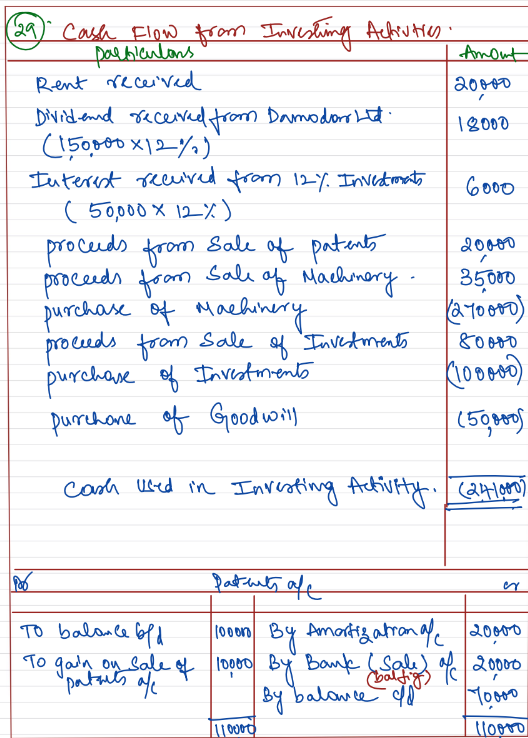 29) Cash Flow from Investing Activities.
particulars Amount
Rent received 20,000
Dividend received from Damodar Ltd. 18000
(150,000 × 12%)
Interest received from 12% Investments 6000
(50,000 × 12%)
proceeds from Sale of patents 20,000
proceeds from Sale of Machinery. 35,000
purchase of Machinery (270000)
proceeds from Sale of Investments 80000
purchase of Investments (100000)
purchase of Goodwill (50,000)
Cash Used in Investing Activity. (241,000)
Dr Patents a/c cr
To balance b/d 100000 By Amortization a/c 20,000
To gain on Sale of 10,000 By Bank (Sale) a/c 20000
patents a/c (bal fig)
By balance c/d 70000
110000 110000